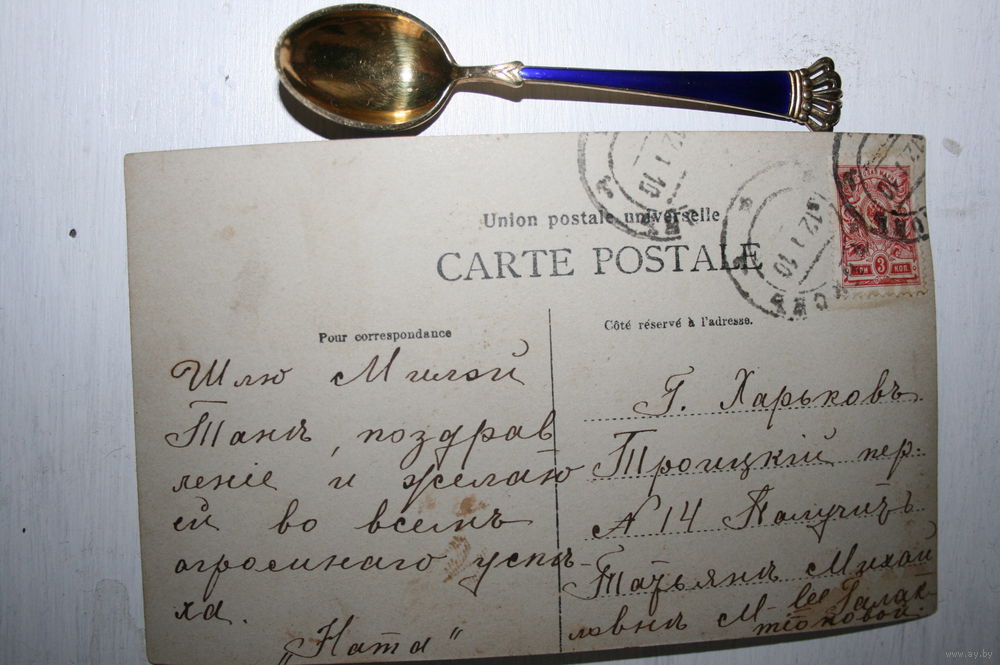 Union postale universelle
CARTE POSTALE
Pour correspondance
Côté réservé à l'adresse.
ТРИ 3 КОП.
12 1 10
12 1 10
Шлю Милой
Танѣ, поздрав
леніе и желаю
ей во всемъ
огромнаго успѣ-
ха.
„Ната"
Г. Харьковъ
Троицкій пер.
№ 14 Получить
Татьянѣ Михай
ловнѣ М-lle Галак-
тіоновой.
www.ay.by